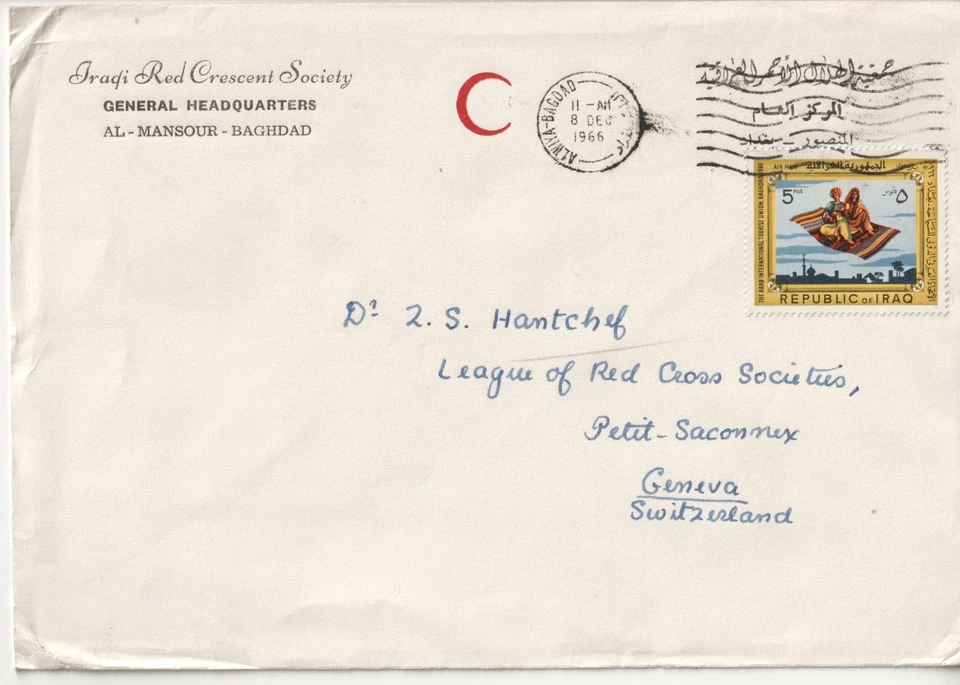 Iraqi Red Crescent Society
GENERAL HEADQUARTERS
AL-MANSOUR-BAGHDAD
جمعية الهلال الأحمر العراقية
المركز العام
المنصور - بغداد
ALWIYA-BAGDAD
11-AM
8 DEC
1966
AIR MAIL
الجمهورية العراقية
5 FILS
٥ فلوس
THE ARAB INTERNATIONAL TOURIST UNION, BAGHDAD
REPUBLIC OF IRAQ
Dr Z. S. Hantchef
League of Red Cross Societies,
Petit-Saconnex
Geneva
Switzerland